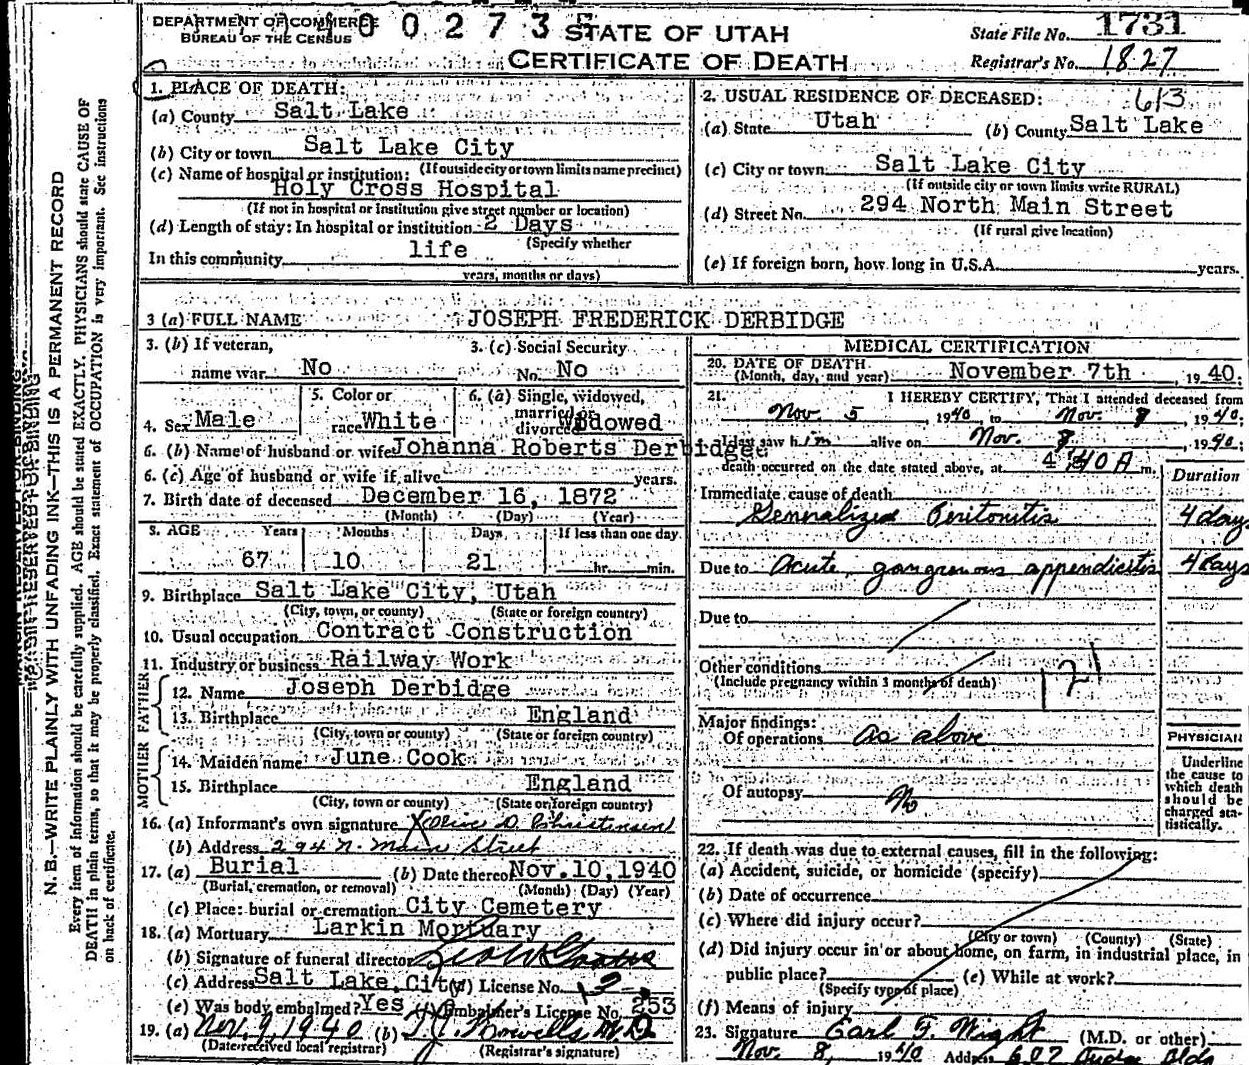 DEPARTMENT OF COMMERCE
BUREAU OF THE CENSUS
400273
STATE OF UTAH
CERTIFICATE OF DEATH
State File No. 1731
Registrar's No. 1827
613
1. PLACE OF DEATH:
(a) County Salt Lake
(b) City or town Salt Lake City
(If outside city or town limits name precinct)
(c) Name of hospital or institution:
Holy Cross Hospital
(If not in hospital or institution give street number or location)
(d) Length of stay: In hospital or institution 2 Days
(Specify whether
In this community life
years, months or days)
2. USUAL RESIDENCE OF DECEASED:
(a) State Utah (b) County Salt Lake
(c) City or town Salt Lake City
(If outside city or town limits write RURAL)
(d) Street No. 294 North Main Street
(If rural give location)
(e) If foreign born, how long in U.S.A. years.
3 (a) FULL NAME JOSEPH FREDERICK DERBIDGE
3. (b) If veteran, 3. (c) Social Security
name war. No No. No
4. Sex Male
5. Color or race White
6. (a) Single, widowed, married or divorced Widowed
6. (b) Name of husband or wife Johanna Roberts Derbidgee
6. (c) Age of husband or wife if alive years.
7. Birth date of deceased December 16, 1872
(Month) (Day) (Year)
8. AGE Years Months Days If less than one day
67 10 21 hr. min.
9. Birthplace Salt Lake City, Utah
(City, town, or county) (State or foreign country)
10. Usual occupation Contract Construction
11. Industry or business Railway Work
FATHER
12. Name Joseph Derbidge
13. Birthplace England
(City, town, or county) (State or foreign country)
MOTHER
14. Maiden name June Cook
15. Birthplace England
(City, town or county) (State or foreign country)
16. (a) Informant's own signature X Olive D. Christensen
(b) Address 294 N. Main Street
17. (a) Burial (b) Date thereof Nov. 10, 1940
(Burial, cremation, or removal) (Month) (Day) (Year)
(c) Place: burial or cremation City Cemetery
18. (a) Mortuary Larkin Mortuary
(b) Signature of funeral director
(c) Address Salt Lake City (d) License No. 13
(e) Was body embalmed? Yes (f) Embalmer's License No. 253
19. (a) Nov. 9, 1940 (b) M.D.
(Date received local registrar) (Registrar's signature)
MEDICAL CERTIFICATION
20. DATE OF DEATH
(Month, day, and year) November 7th, 1940.
21. I HEREBY CERTIFY, That I attended deceased from
Nov. 5, 1940, to Nov. 8, 1940;
I last saw him alive on Nov. 8, 1940;
death occurred on the date stated above, at 4:40 A m.
Duration
Immediate cause of death
Generalized Peritonitis 4 days
Due to Acute gangrenous appendicitis 4 days
Due to
Other conditions
(Include pregnancy within 3 months of death)
121
Major findings:
Of operations As above
Of autopsy No
PHYSICIAN
Underline
the cause to
which death
should be
charged sta-
tistically.
22. If death was due to external causes, fill in the following:
(a) Accident, suicide, or homicide (specify)
(b) Date of occurrence
(c) Where did injury occur?
(City or town) (County) (State)
(d) Did injury occur in or about home, on farm, in industrial place, in
public place? (e) While at work?
(Specify type of place)
(f) Means of injury
23. Signature Earl F. Wight (M.D. or other)
Nov. 8, 1940 Address 602 Bldg
N. B.—WRITE PLAINLY WITH UNFADING INK—THIS IS A PERMANENT RECORD
Every item of Information should be carefully supplied. AGE should be stated EXACTLY. PHYSICIANS should state CAUSE OF
DEATH in plain terms, so that it may be properly classified. Exact statement of OCCUPATION is very important. See instructions
on back of certificate.